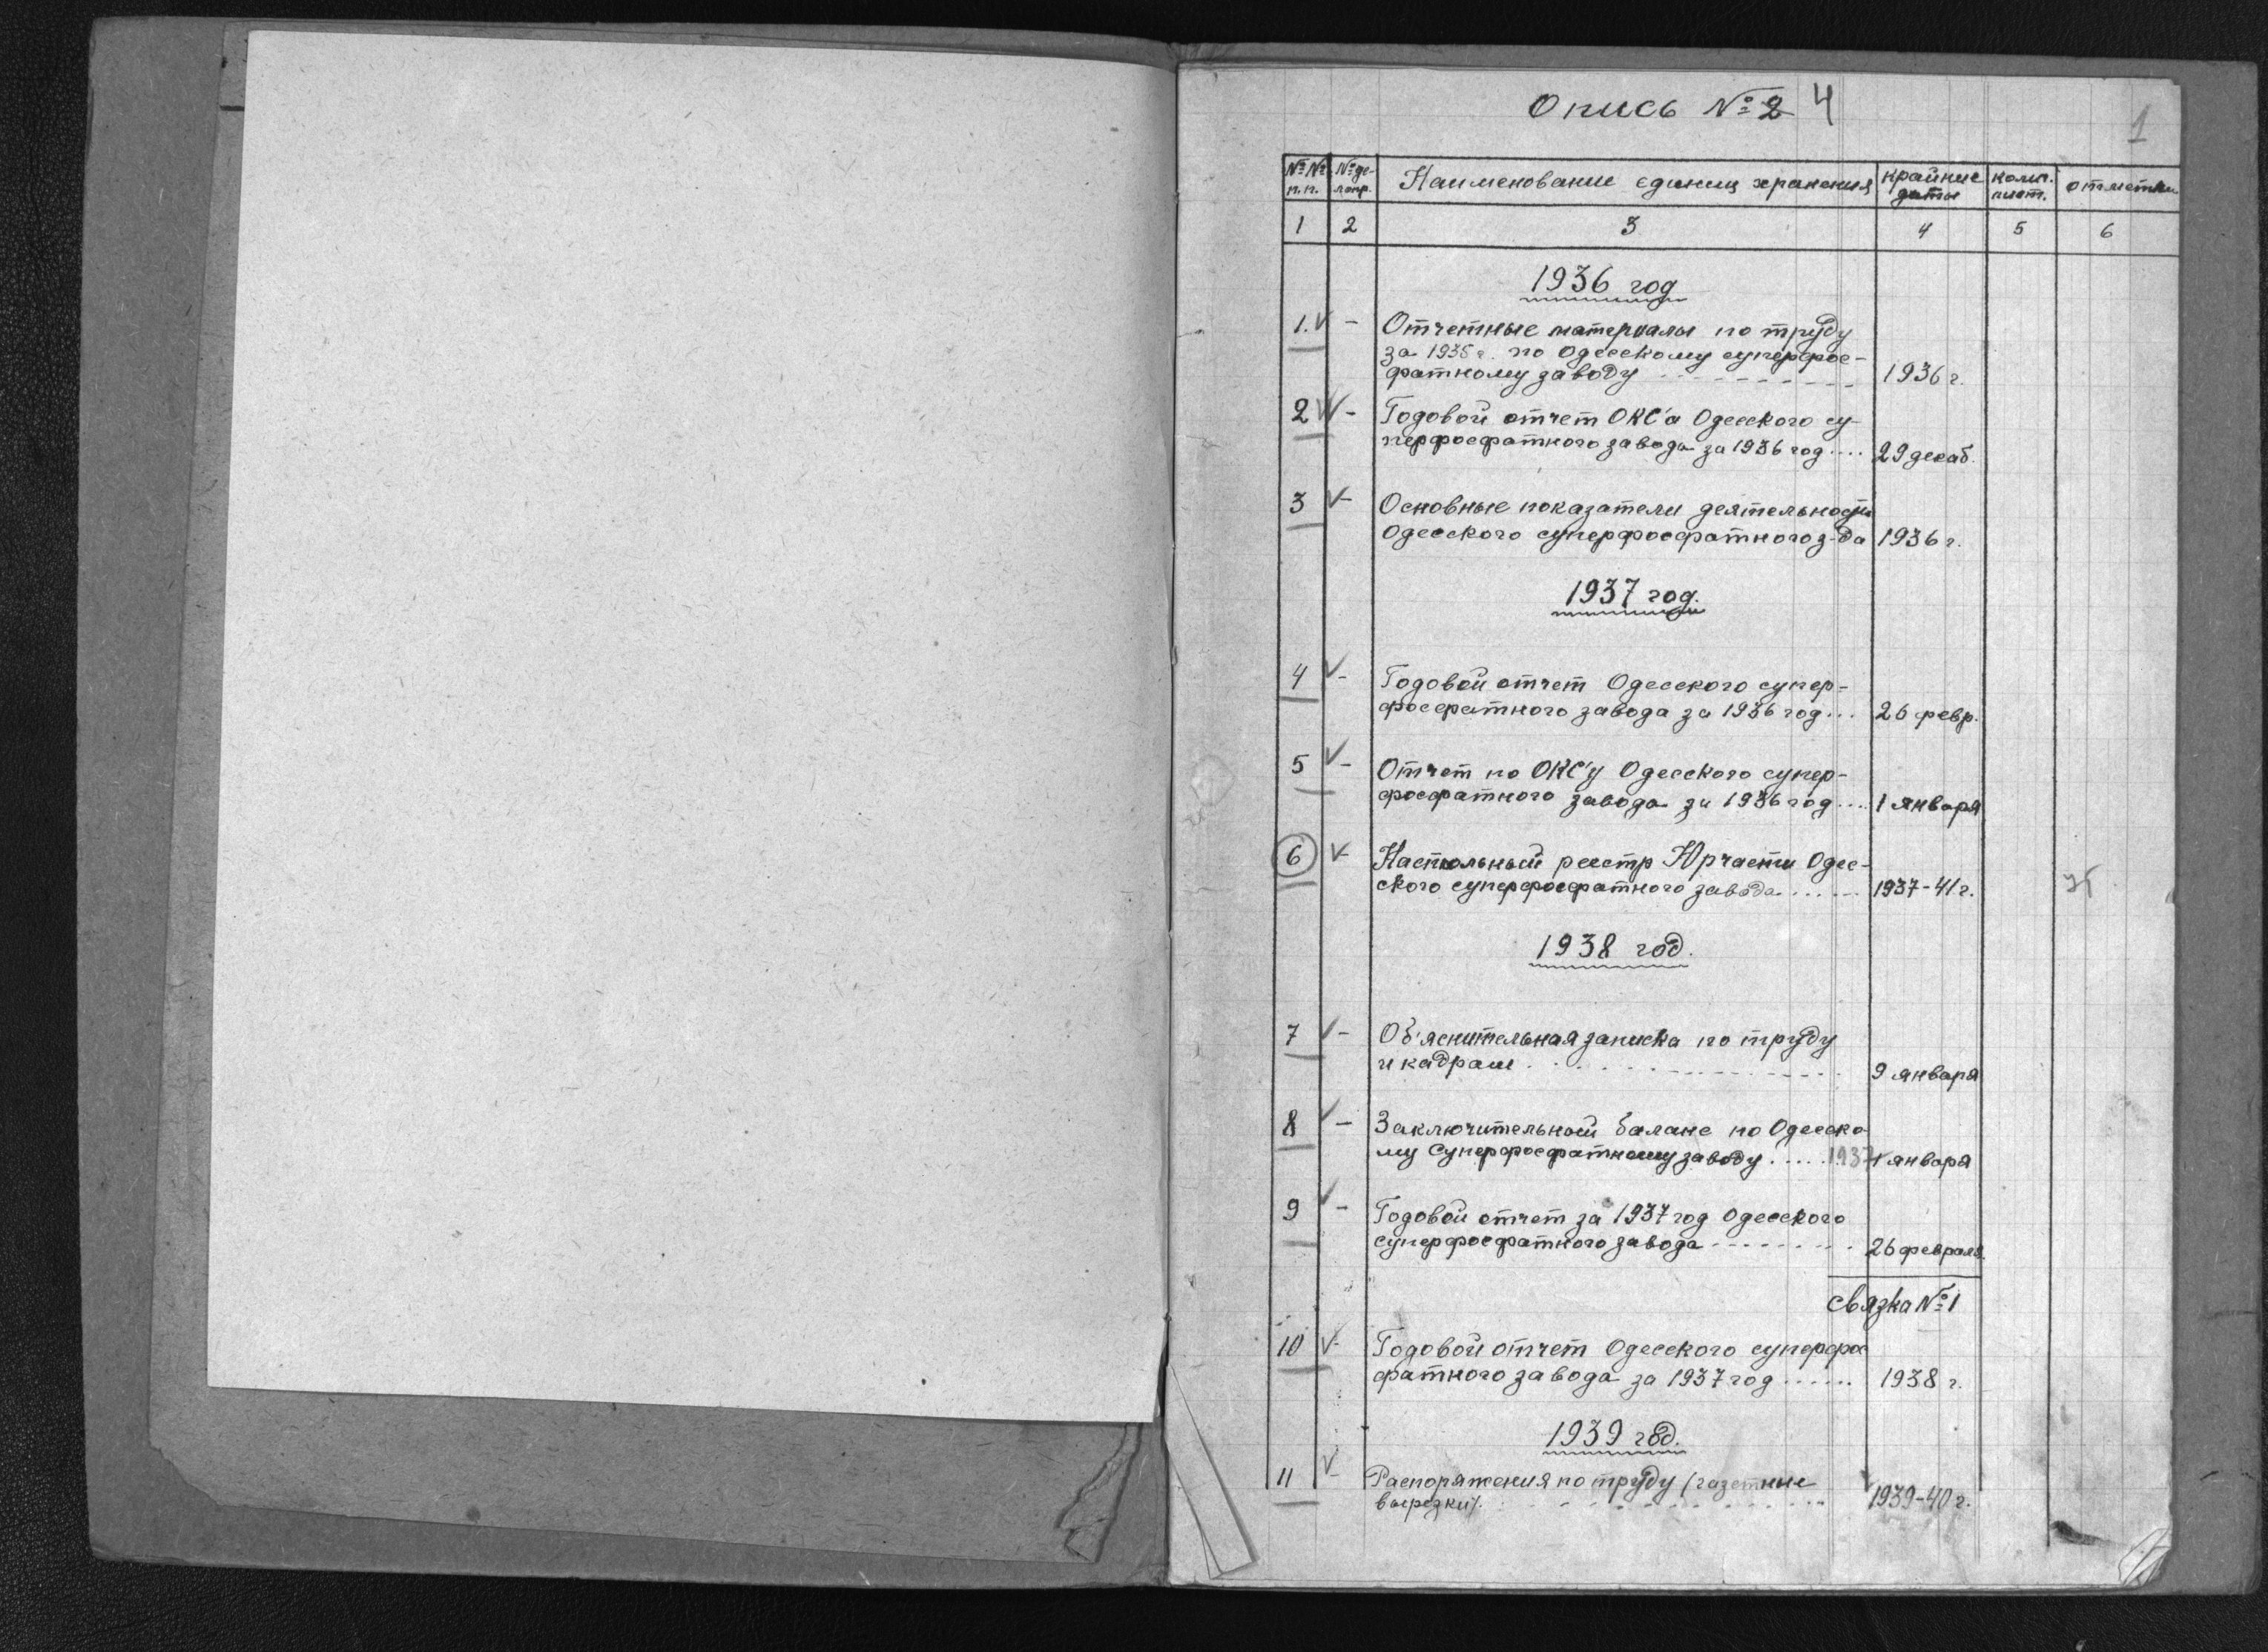 Опись № 2 4
1
№№ п.п.
№ де-лопр.
Наименование единиц хранения
крайние даты
колич. лист.
отметки
1 2 3 4 5 6
1936 год
1. V - Отчетные материалы по труду
за 1935 г. по Одесскому суперфос-
фатному заводу 1936 г.
2 V - Годовой отчет ОКС'а Одесского су-
перфосфатного завода за 1936 год .... 29 декаб.
3 V - Основные показатели деятельности
Одесского суперфосфатного з-да 1936 г.
1937 год.
4 V - Годовой отчет Одесского супер-
фосфатного завода за 1936 год ... 26 февр.
5 V - Отчет по ОКС'у Одесского супер-
фосфатного завода за 1936 год .... 1 января
6 V - Настольный реестр Юрчасти Одес-
ского суперфосфатного завода ...... 1937-41 г.
1938 год.
7 V - Об'яснительная записка по труду
и кадрам 9 января
8 V - Заключительный баланс по Одесско-
му Суперфосфатному заводу ..... 1937 1 января
9 V - Годовой отчет за 1937 год Одесского
суперфосфатного завода 26 февраля.
Связка № 1
10 V - Годовой отчет Одесского суперфос
фатного завода за 1937 год ...... 1938 г.
1939 год.
11 V - Распоряжения по труду (газетные
вырезки). 1939-40 г.